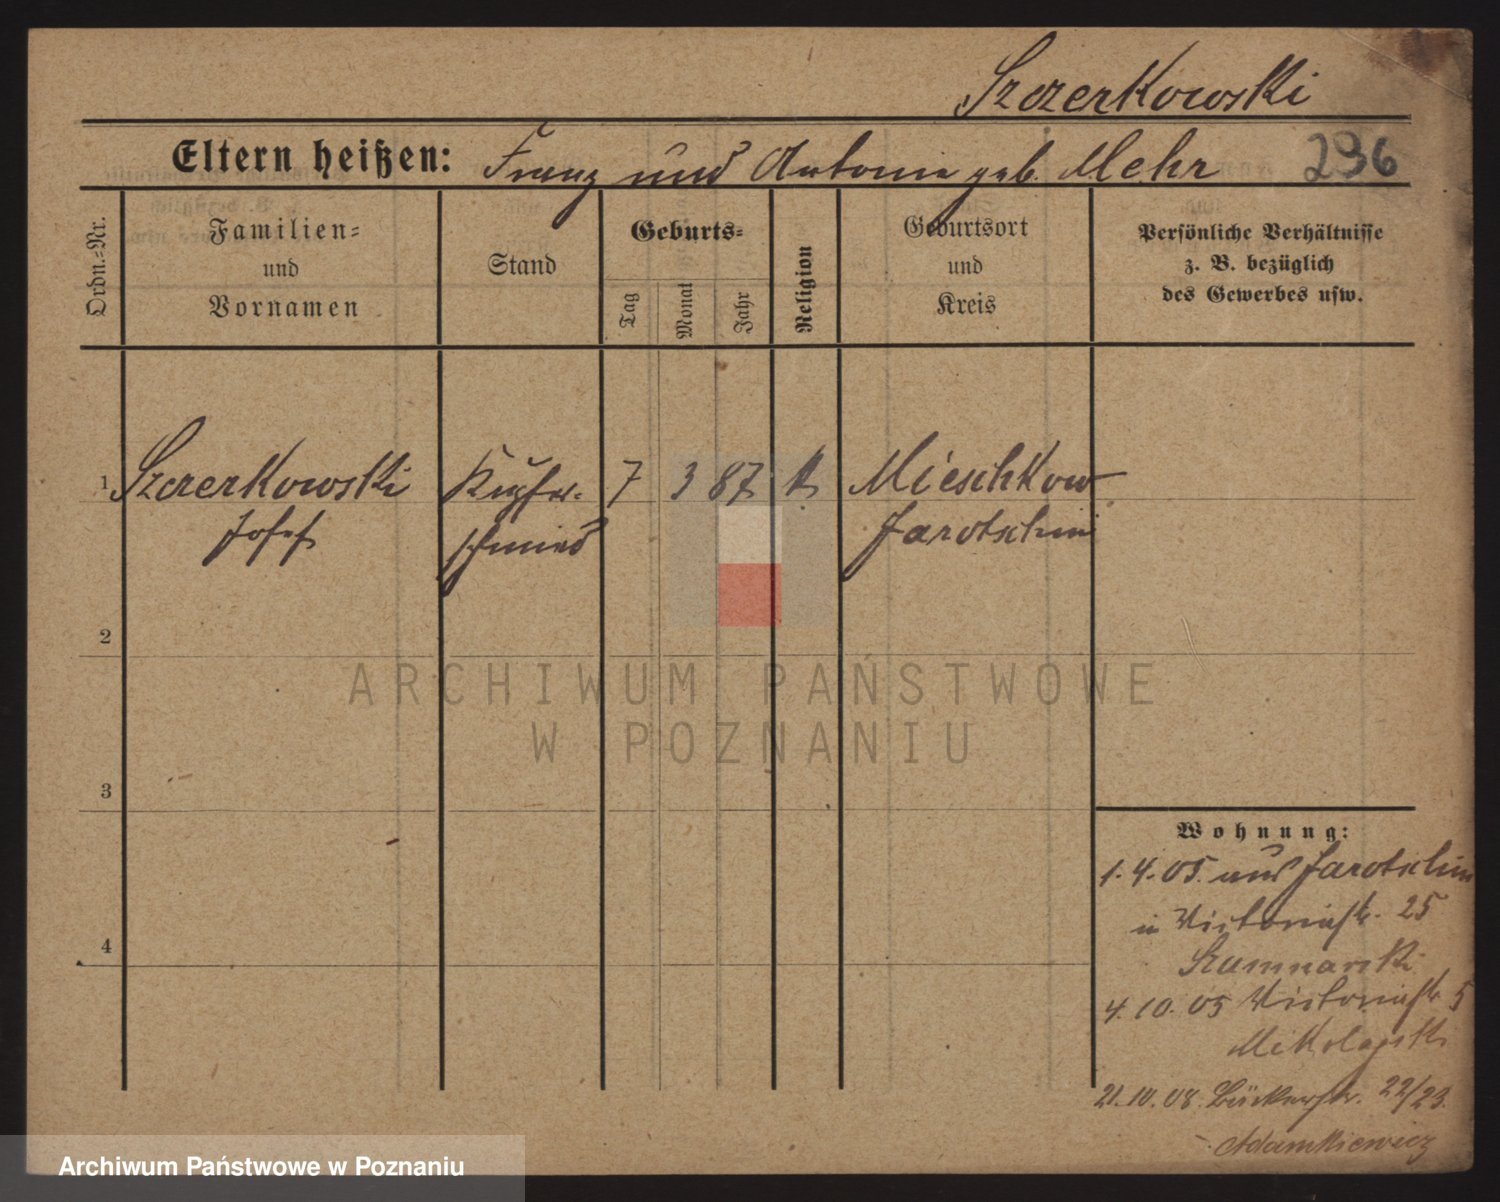 Szczerkowski
Eltern heißen: Franz und Antonie geb. Mehr 296
Ordn.-Nr.
Familien-
und
Vornamen
Stand
Geburts-
Tag
Monat
Jahr
Religion
Geburtsort
und
Kreis
Persönliche Verhältnisse
z. B. bezüglich
des Gewerbes usw.
1 Szczerkowski Kupfer- 7 3 87 k Mieschkow
Josef schmied Jarotschin
2
3
4
Wohnung:
1.4.05. aus Jarotschin
in Victoriastr. 25
4.10.05 Victoriastr 5
Mikolajski
21.10.08. Bäckerstr. 22/23.
Adamkiewicz
ARCHIWUM PAŃSTWOWE
W POZNANIU
Archiwum Państwowe w Poznaniu